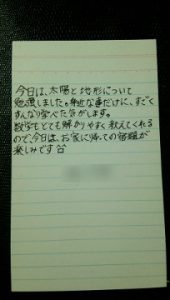 今日は、太陽と地形について
勉強しました。身近な事だけに、すごく
すんなり学べた気がします。
数学もとても解かりやすく教えてくれる
ので、今日は、お家に帰っての宿題が
楽しみです